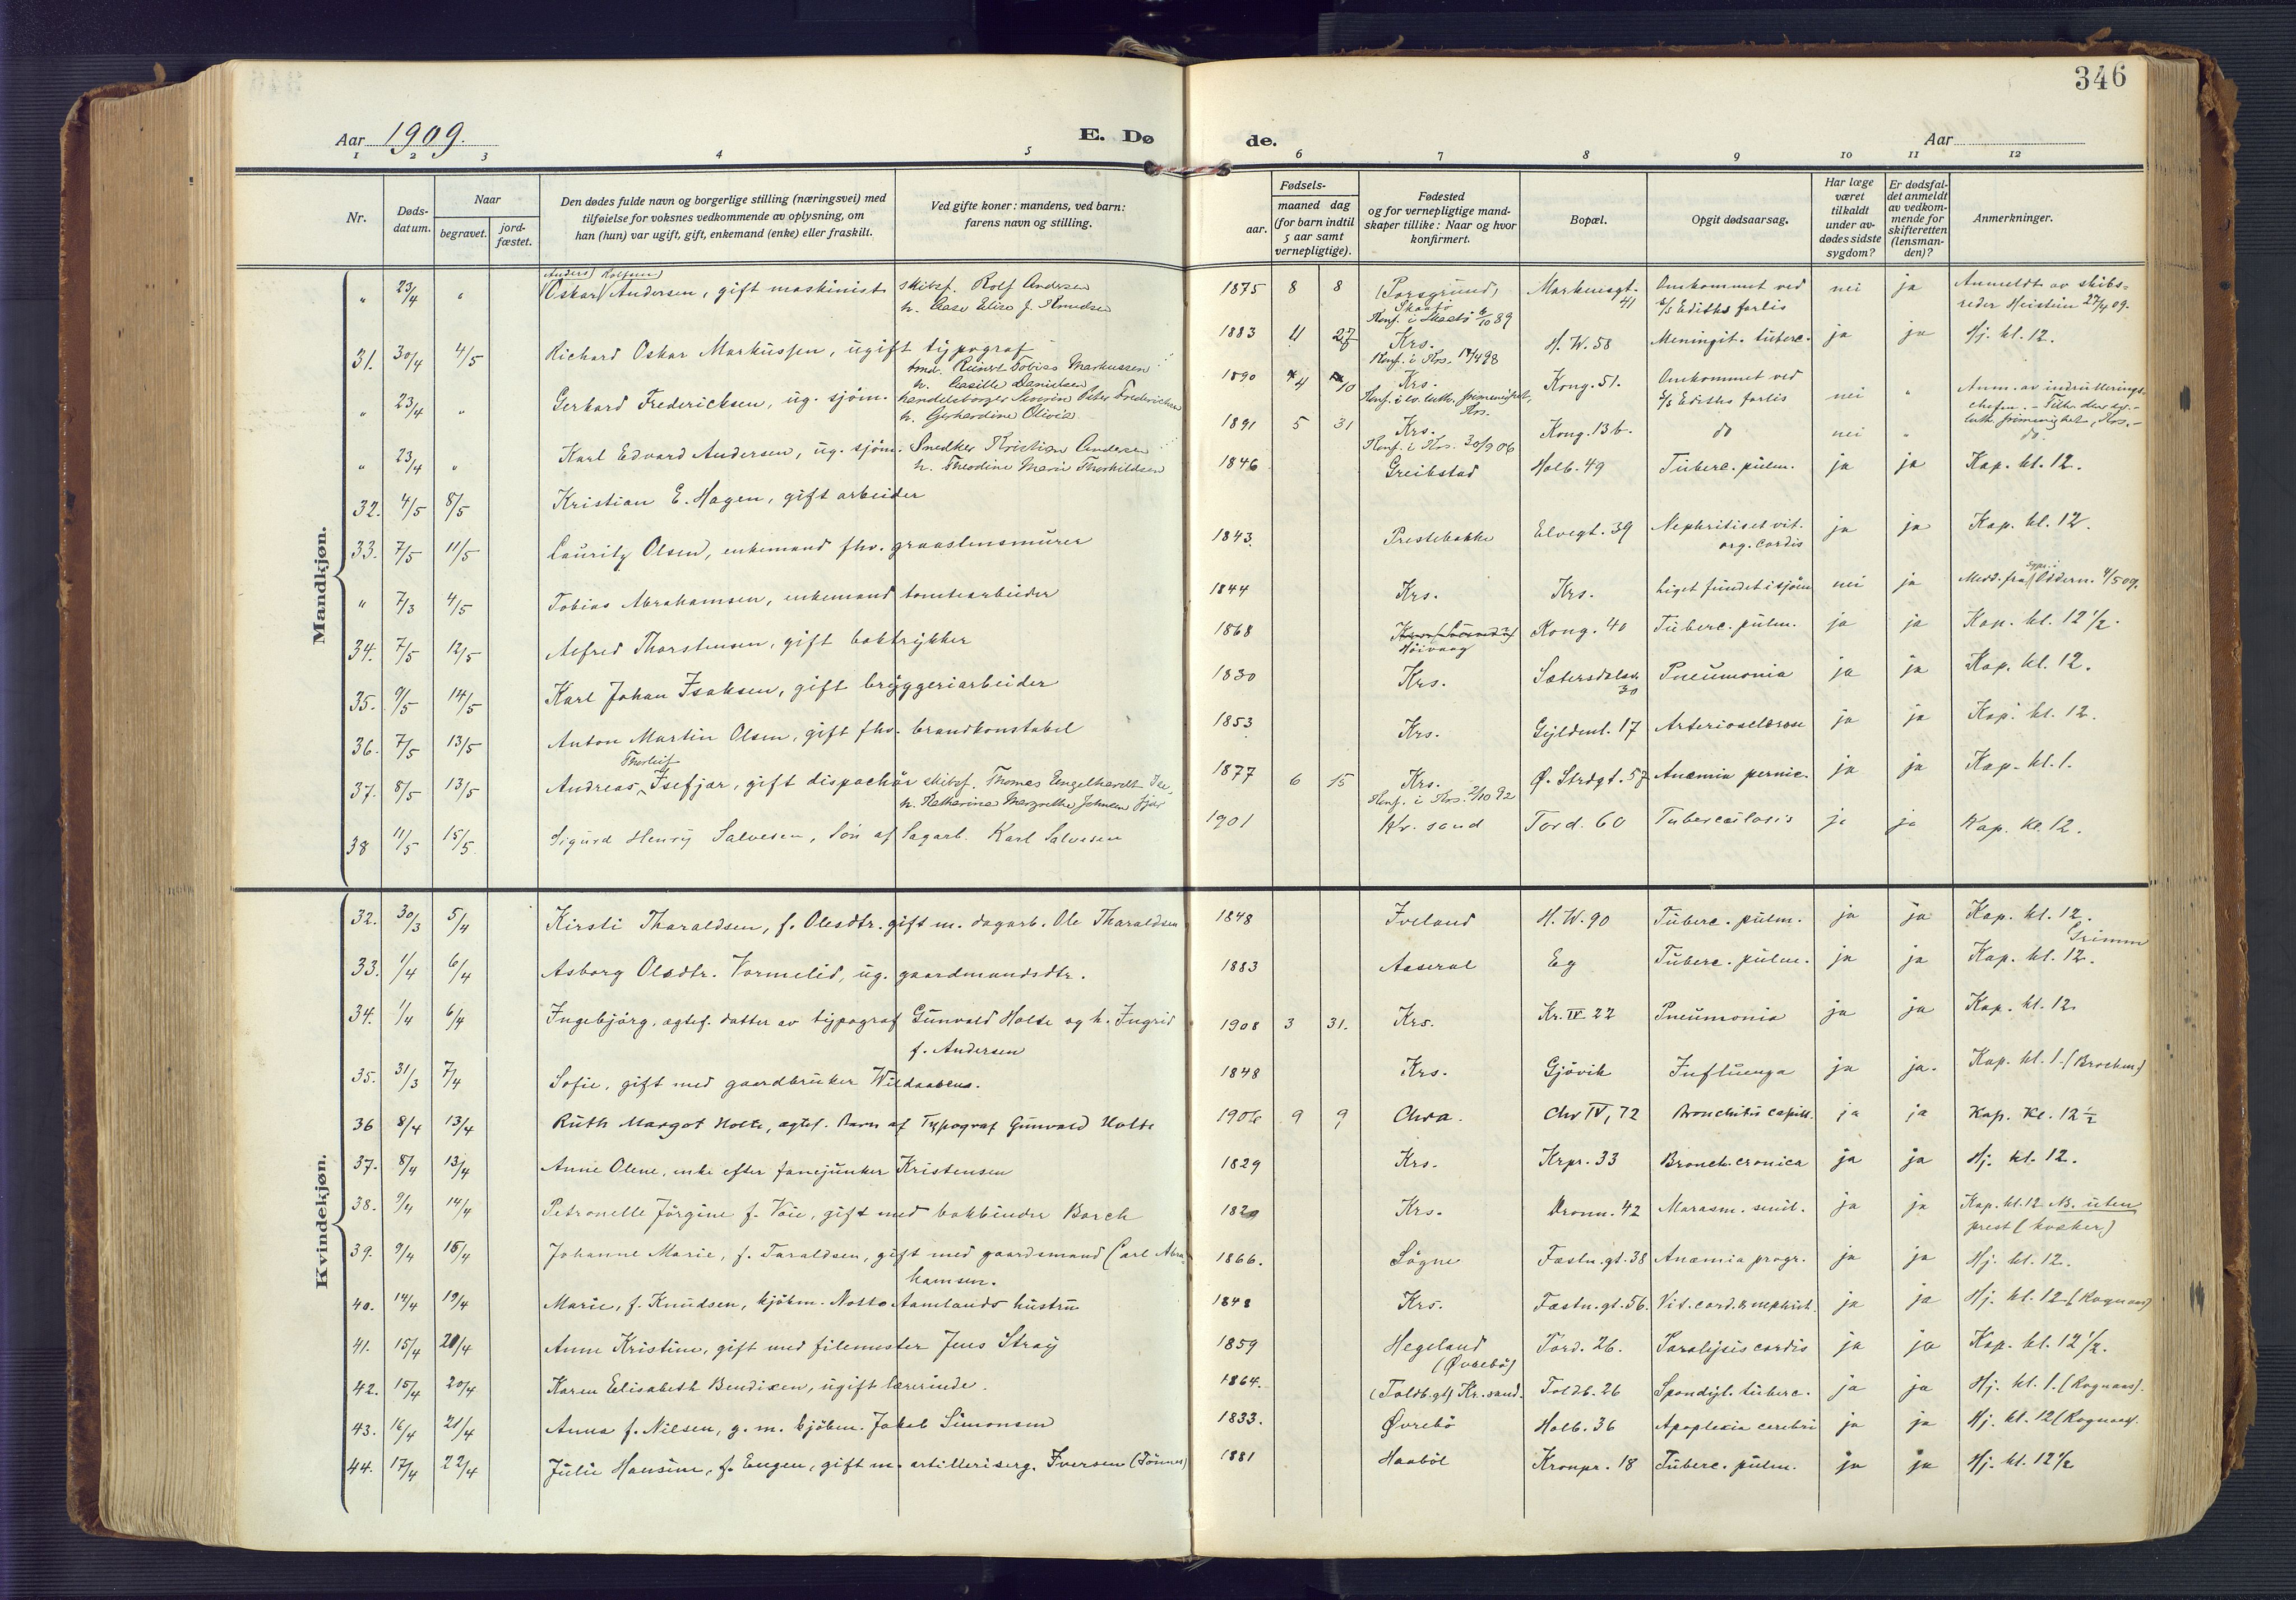 346
Aar 1909.
E. Dø
de.
Aar
1 2 3 4 5
6 7 8 9 10 11 12
Nr.
Døds-
datum.
Naar
begravet.
jord-
fæstet.
Den dødes fulde navn og borgerlige stilling (næringsvei) med
tilføielse for voksnes vedkommende av oplysning, om
han (hun) var ugift, gift, enkemand (enke) eller fraskilt.
Ved gifte koner: mandens, ved barn:
farens navn og stilling.
Fødsels-
aar.
maaned dag
(for barn indtil
5 aar samt
vernepligtige).
Fødested
og for vernepligtige mand-
skaper tillike: Naar og hvor
konfirmert.
Bopæl.
Opgit dødsaarsag.
Har læge
været
tilkaldt
under av-
dødes sidste
sygdom?
Er dødsfal-
det anmeldt
av vedkom-
mende for
skifteretten
(lensman-
den)?
Anmerkninger.
Mandkjøn.
Anders) Rolfsen)
" 23/4 " (Oskar) Andersen, gift maskinist skibsf. Rolf Andersen 1875 8 8 (Porsgrund, Markensgt. 41 Omkommet ved nei ja Anmeldt av skibs-
h. Aase Elise f. Knudsen Skaatø s/s Ediths forlis reder Heistein 27/4 09.
Konf. i Skaatø 6/10 89
31. 30/4 4/5 Richard Oskar Markussen, ugift typograf 1883 11 27 Krs. H. W. 58 Meningit. tuberc. ja ja Hj. kl. 12.
tmd. Reinert Tobias Markussen Konf. i Krs. 17/4 98
h. Danielsen
" 23/4 " Gerhard Fredericksen, ug. sjøm. handelsborger Severin Peter Fredericksen 1890 4 10 Krs. Kong. 51. Omkommet ved nei " Anm. av indrullerings-
h. Gerhardine Olivia Konf. i ev. luth. frimenighet, Krs. s/s Ediths forlis chefen. - Tilh. den ev.-
luth. frimenighet, Krs. -
" 23/4 " Karl Edvard Andersen, ug. sjøm. Snedker Kristian Andersen 1891 5 31 Krs. Kong. 13 b. do nei " do.
h. Theodine Marie Thorkildsen Konf. i Krs. 30/9 06
32. 4/5 8/5 Kristian E. Hagen, gift arbeider 1846 Greibstad Holb. 49 Tuberc. pulm. ja ja Kap. kl. 12.
33. 7/5 11/5 Lauritz Olsen, enkemand fhv. graastensmurer 1843. Prestebakke Elvegt. 39 Nephritis et vit. ja ja Kap. kl. 12.
org. cordis
" 7/3 4/5 Tobias Abrahamsen, enkemand tomtearbeider 1844 Krs. Krs. Liget fundet i sjøen nei ja Medd. fra spr. i Oddern. 4/5 09.
34. 7/5 12/5 Alfred Thorstensen, gift boktrykker 1868 Høivaag Kong. 40 Tuberc. pulm. ja ja Kap. kl. 12 1/2.
35. 9/5 14/5 Karl Johan Isaksen, gift bryggeriarbeider 1830 Krs. Sætersdalsv. 30 Pneumonia ja ja Kap. kl. 12.
36. 7/5 13/5 Anton Martin Olsen, gift fhv. brandkonstabel 1853 Krs. Gyldenl. 17 Arteriosclerose ja ja Kap. kl. 12.
Thorleif
37. 8/5 13/5 Andreas Isefjær, gift dispachør skibsf. Thomas Engelhardt Ise- 1877 6 15 Krs. Ø. Strdgt. 57 Anæmia pernic. ja ja Kap. kl. 1.
h. Katharine Margrethe Johnsen fjær Konf. i Krs. 2/10 92
38 11/5 15/5 Sigurd Henry Salvesen, søn af Sagarb. Karl Salvesen 1901 Kr. sand Tord. 60 Tuberculosis ja ja Kap. Kl. 12.
Kvindekjøn.
32. 30/3 5/4 Kirsti Tharaldsen, f. Olesdtr. gift m. dagarb. Ole Tharaldsen 1848 Iveland H. W. 90 Tuberc. pulm. ja ja Kap. kl. 12.
Grimm
33. 1/4 6/4 Asborg Olsdtr. Vormelid, ug. gaardmandsdtr. 1883 Aaseral Eg Tuberc. pulm. ja ja Kap. kl. 12.
34. 1/4 6/4 Ingebjørg, ægtef. datter av typograf Gunvald Holte og h. Ingrid 1908 3 31. Krs. Kr. IV 22 Pneumonia ja ja Kap. kl. 12
f. Andersen
35. 31/3 7/4 Sofie, gift med gaardbruker Wildaasens. 1848 Krs. Gjøvik Influenza ja ja. Kap. kl. 1. (Brochm)
36 8/4 13/4 Ruth Margot Holte, ægtef. Barn af Typograf Gunvald Holte 1906 9 9 Chra. Chr IV, 72 Bronchitis capill. ja ja Kap. Kl. 12 1/2
37. 8/4 13/4 Anne Olene, enke efter fanejunker Kristensen 1829 Krs. Krpr. 33 Bronch. cronica ja ja Hj. kl. 12.
38. 9/4 14/4 Petronelle Jørgine f. Voie, gift med bokbinder Borch 1820 Krs. Dronn. 42 Marasm. senil. ja ja Kap. kl. 12 NB. uten
prest (kvæker)
39. 9/4 15/4 Johanne Marie, f. Taraldsen, gift med gaardsmand Carl Abra- 1866. Søgne Fæstn. gt. 38 Anæmia progr. ja ja Hj. kl. 12.
hamsen.
40. 14/4 19/4 Marie, f. Knudsen, kjøbm. Notto Aamlands hustru 1848 Krs. Fæstn. gt. 56. Vit. cord. & nephrit. ja ja Hj. kl. 12 (Rognaas)
41. 15/4 20/4 Anne Kristine, gift med filemester Jens Stray 1859 Hegeland Tord. 26. Paralysis cordis ja ja Kap. kl. 12 1/2.
(Øvrebø)
42. 15/4 20/4 Karen Elisabeth Bendixen, ugift lærerinde. 1864. (Toldb. gt) Kr. sand. Toldb. 26 Spondyl. tuberc. ja ja Hj. kl. 1. (Rognaas).
43. 16/4 21/4 Anna f. Nilsen, g. m. kjøbm. Jakob Simonsen 1833. Øvrebø Holb. 36 Apoplexia cerebri ja ja Hj. kl. 12 (Rognaas).
44. 17/4 22/4 Julie Hansine, f. Eugen, gift m. artilleriserg. Iversen (Tønnes) 1881 Haabøl Kronpr. 18 Tuberc. pulm. ja ja Hj. kl. 12 1/2